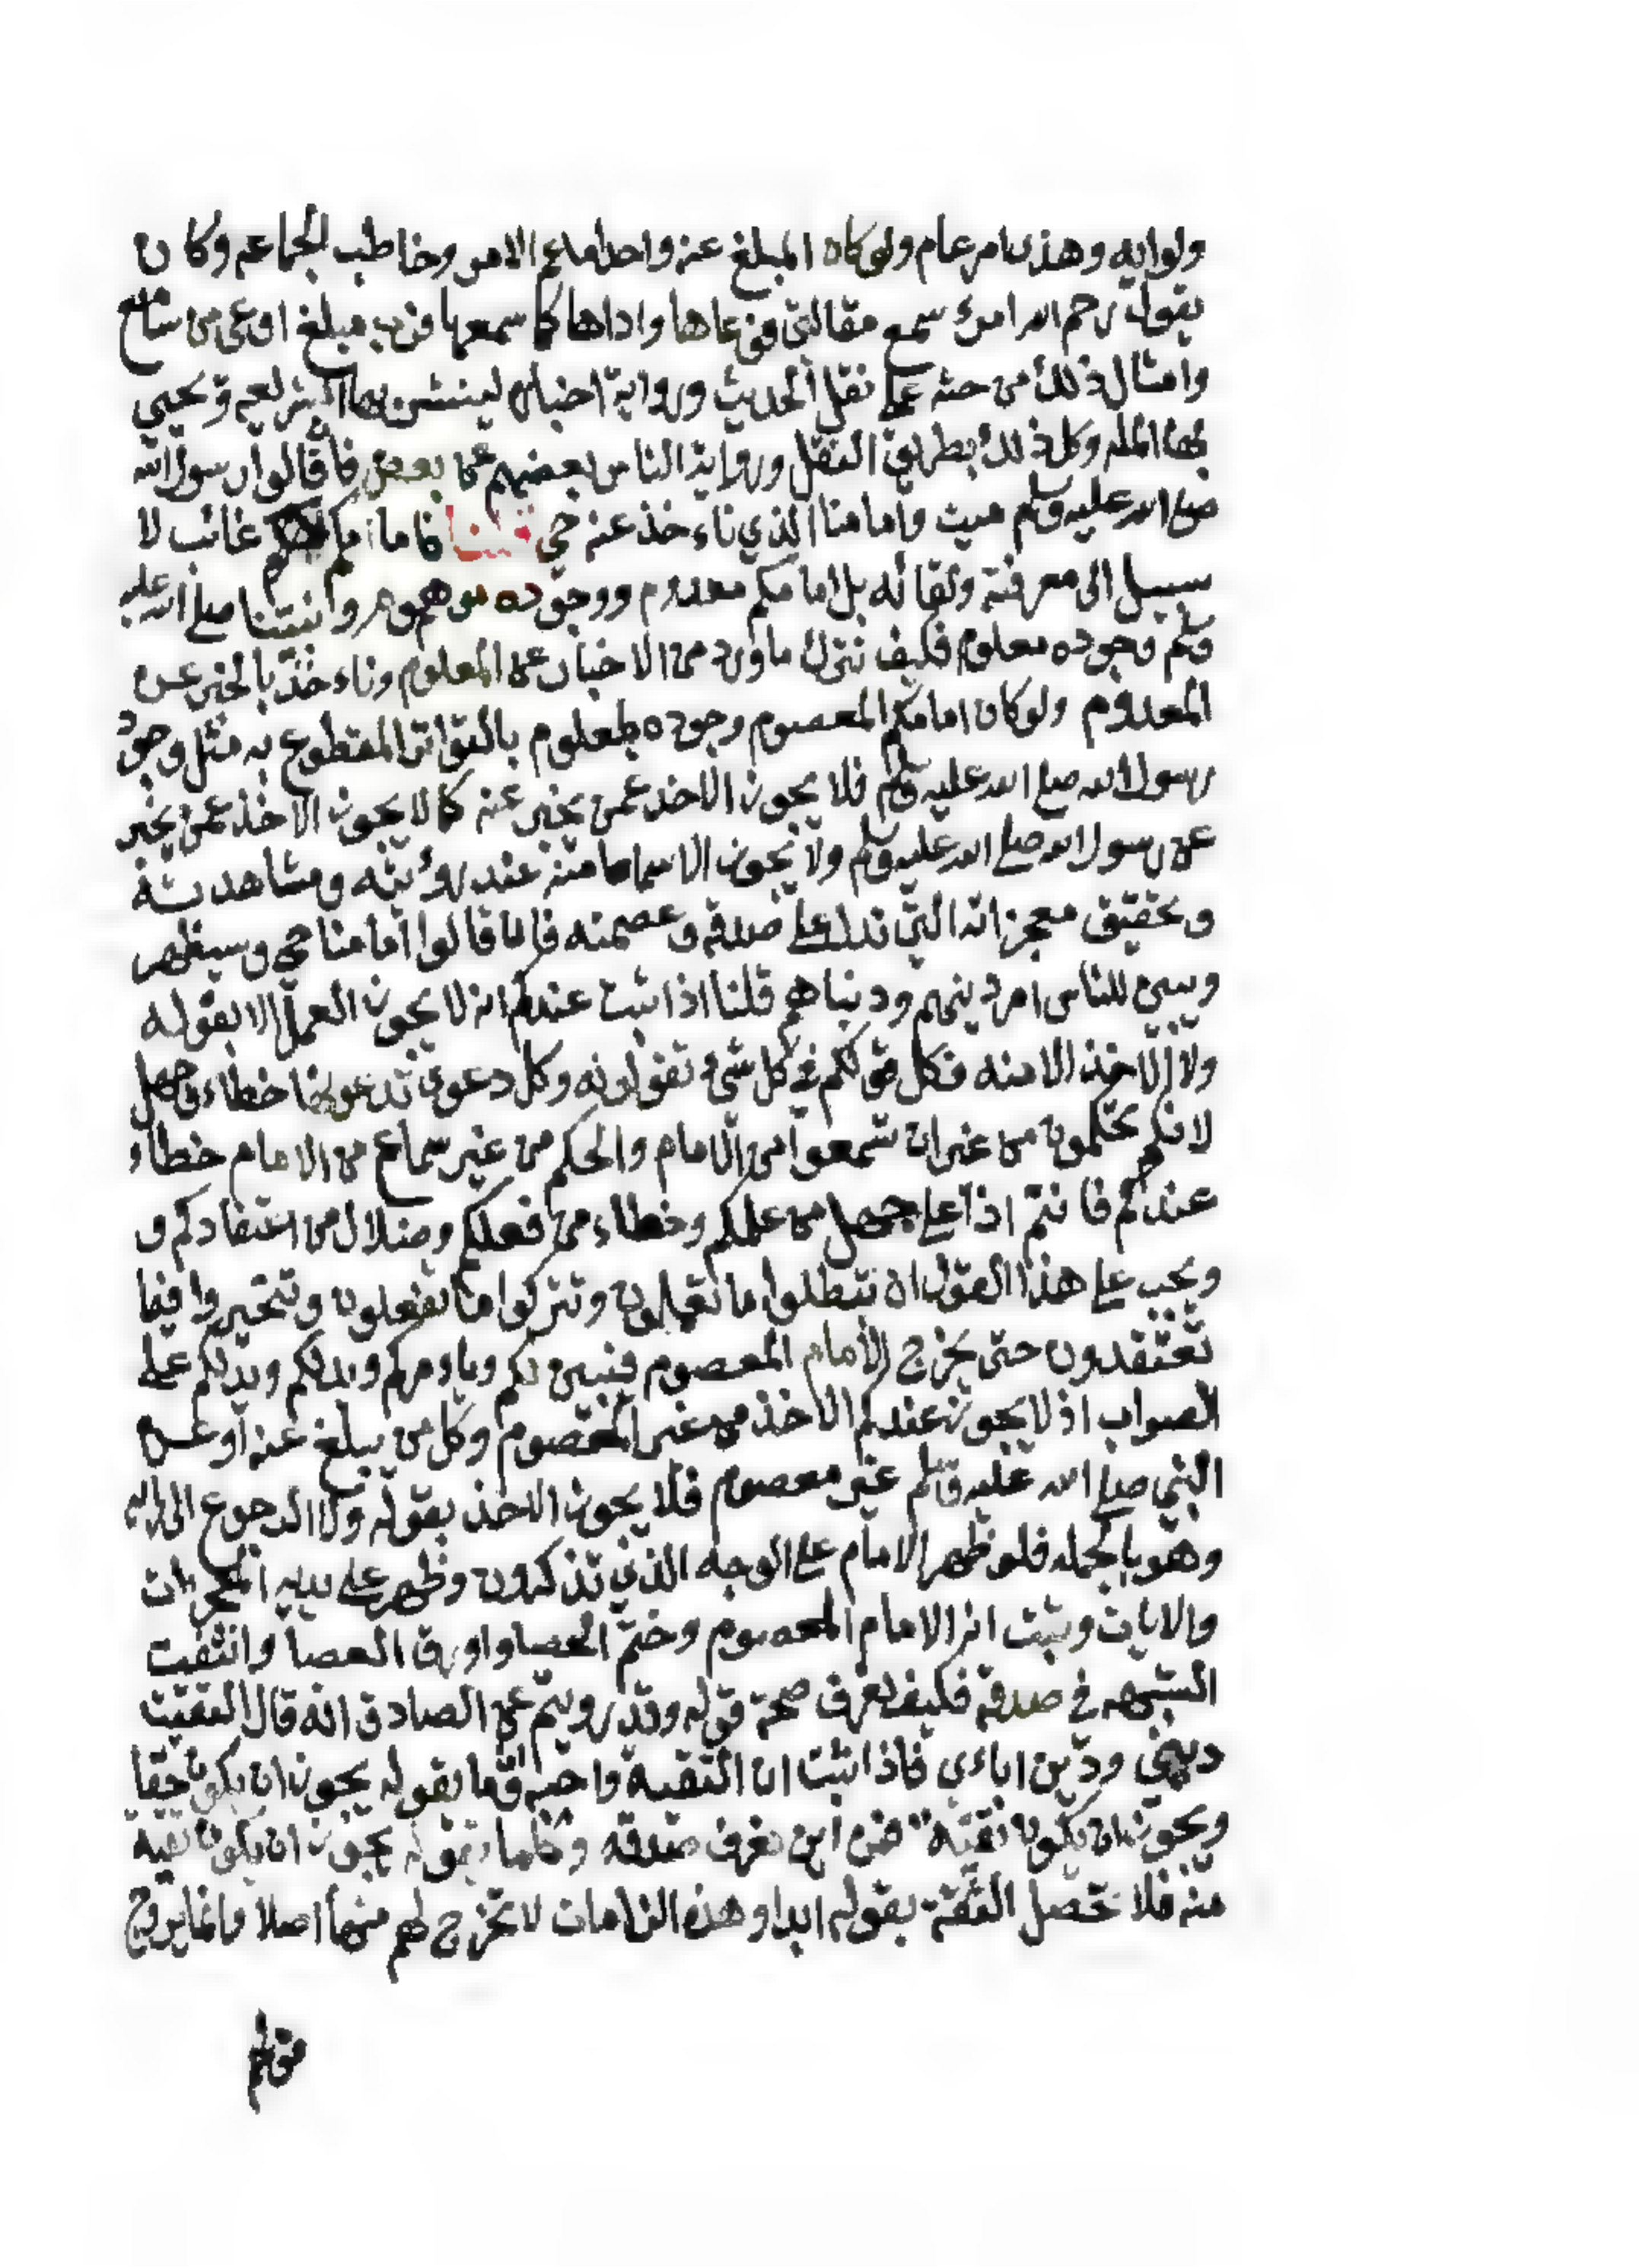 ولو ايه وهذا امر عام ولو كان المبلغ عنه واحدا ما عم الامر وخاطب الجماعه وكان
يقول رحم الله امرئ سمع مقالتي فوعاها واداها كما سمعها فرب مبلغ اوعى من سامع
وامثال ذلك من حثه على نقل الحديث ورواية اخباره لينتشر بها الشريعه وتحيى
بها المله وكل ذلك بطريق النقل ورواية الناس بعضهم عن بعض فان قالوا رسول الله
صلى الله عليه وسلم ميت وامامنا الذي ناءخذ عنه حي قلنا فامامكم غائب لا
سبيل الى معرفته ولقائه بل امامكم معدوم ووجوده موهوم ونبينا صلى الله عليه
وسلم وجوده معلوم فكيف نترك ما ورد من الاخبار عن المعلوم وناءخذ بالخبر عن
المعدوم ولو كان امامكم المعصوم وجوده معلوم بالتواتر المقطوع به مثل وجود
رسول الله صلى الله عليه وسلم فلا يجوز الاخذ عمن يخبر عنه كما لا يجوز الاخذ عمن يخبر
عن رسول الله صلى الله عليه وسلم ولا يجوز الا سماعا منه عند روئيته ومشاهدته
وتحقيق معجزاته التي تدل على صدقه وعصمته فاما قالوا امامنا حي وسيظهر
ويبين للناس امر دينهم ودنياهم قلنا اذا ثبت عندكم انه لا يجوز العمل الا بقوله
ولا الاخذ الا منه فكل قولكم في كل شيء تقولونه وكل دعوى تدعونها خطاء وجهل
لانكم تحكمون من غير ان تسمعوا من الامام والحكم من غير سماع من الامام خطاء
عندكم فانتم اذا على جهل من علمكم وخطاء من فعلكم وضلال من اعتقادكم و
ويجب على هذا القول ان تبطلوا ما تعملون وتتركوا ما تفعلون وتتحيروا فيما
تعتقدون حتى يخرج الامام المعصوم فيبين لكم وياءمركم ويدلكم على
الصواب اذ لا يجوز عندكم الاخذ من غير المعصوم وكل من يبلغ عنه او عن
النبي صلى الله عليه وسلم غير معصوم فلا يجوز الاخذ بقوله ولا الرجوع الى رايه
وهو بالجمله فلو ظهر الامام على الوجه الذي تذكرون وظهر على يديه المعجزات
والايات وثبت انه الامام المعصوم وختم الحصا واورق العصا وانتفت
الشبهه في صدقه فكيف نعرف صحة قوله وقد رويتم عن الصادق انه قال التقيت
ديني ودين اباءي فاذا ثبت ان التقية واجبه وما يقوله يجوز ان يكون حقا
ويجوز ان يكون تقية فمن اين نعرف صدقه وكلما يقوله يجوز ان يكون تقية
منه فلا تحصل الثقة بقوله ابدا وهذه الزامات لا تخرج لهم منها اصلا وانما يروج
قولهم